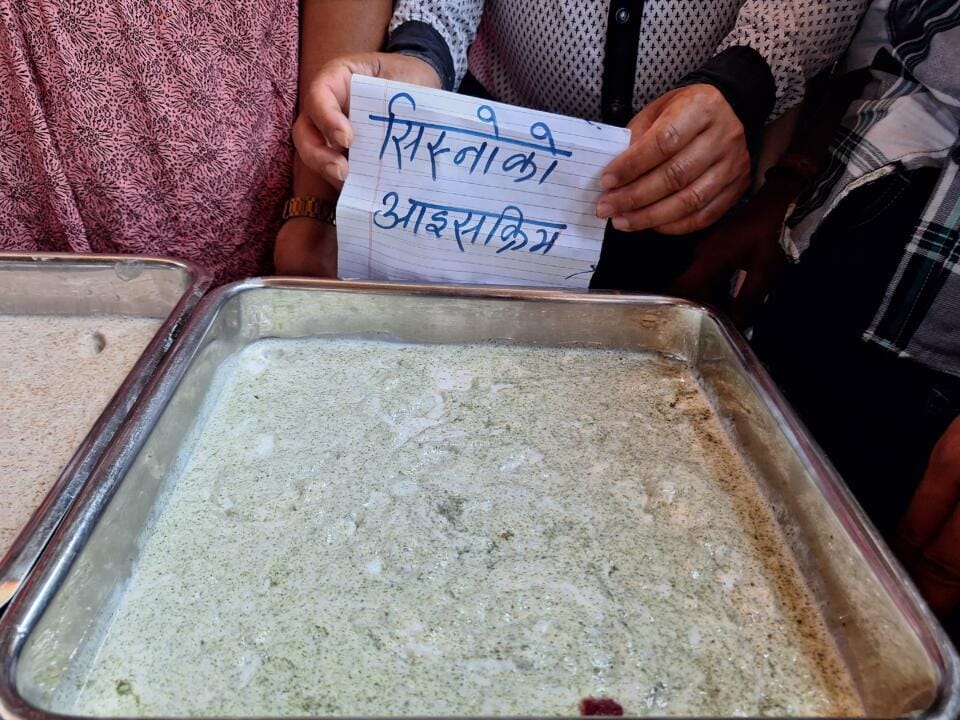 सिस्नोको
आइसक्रिम